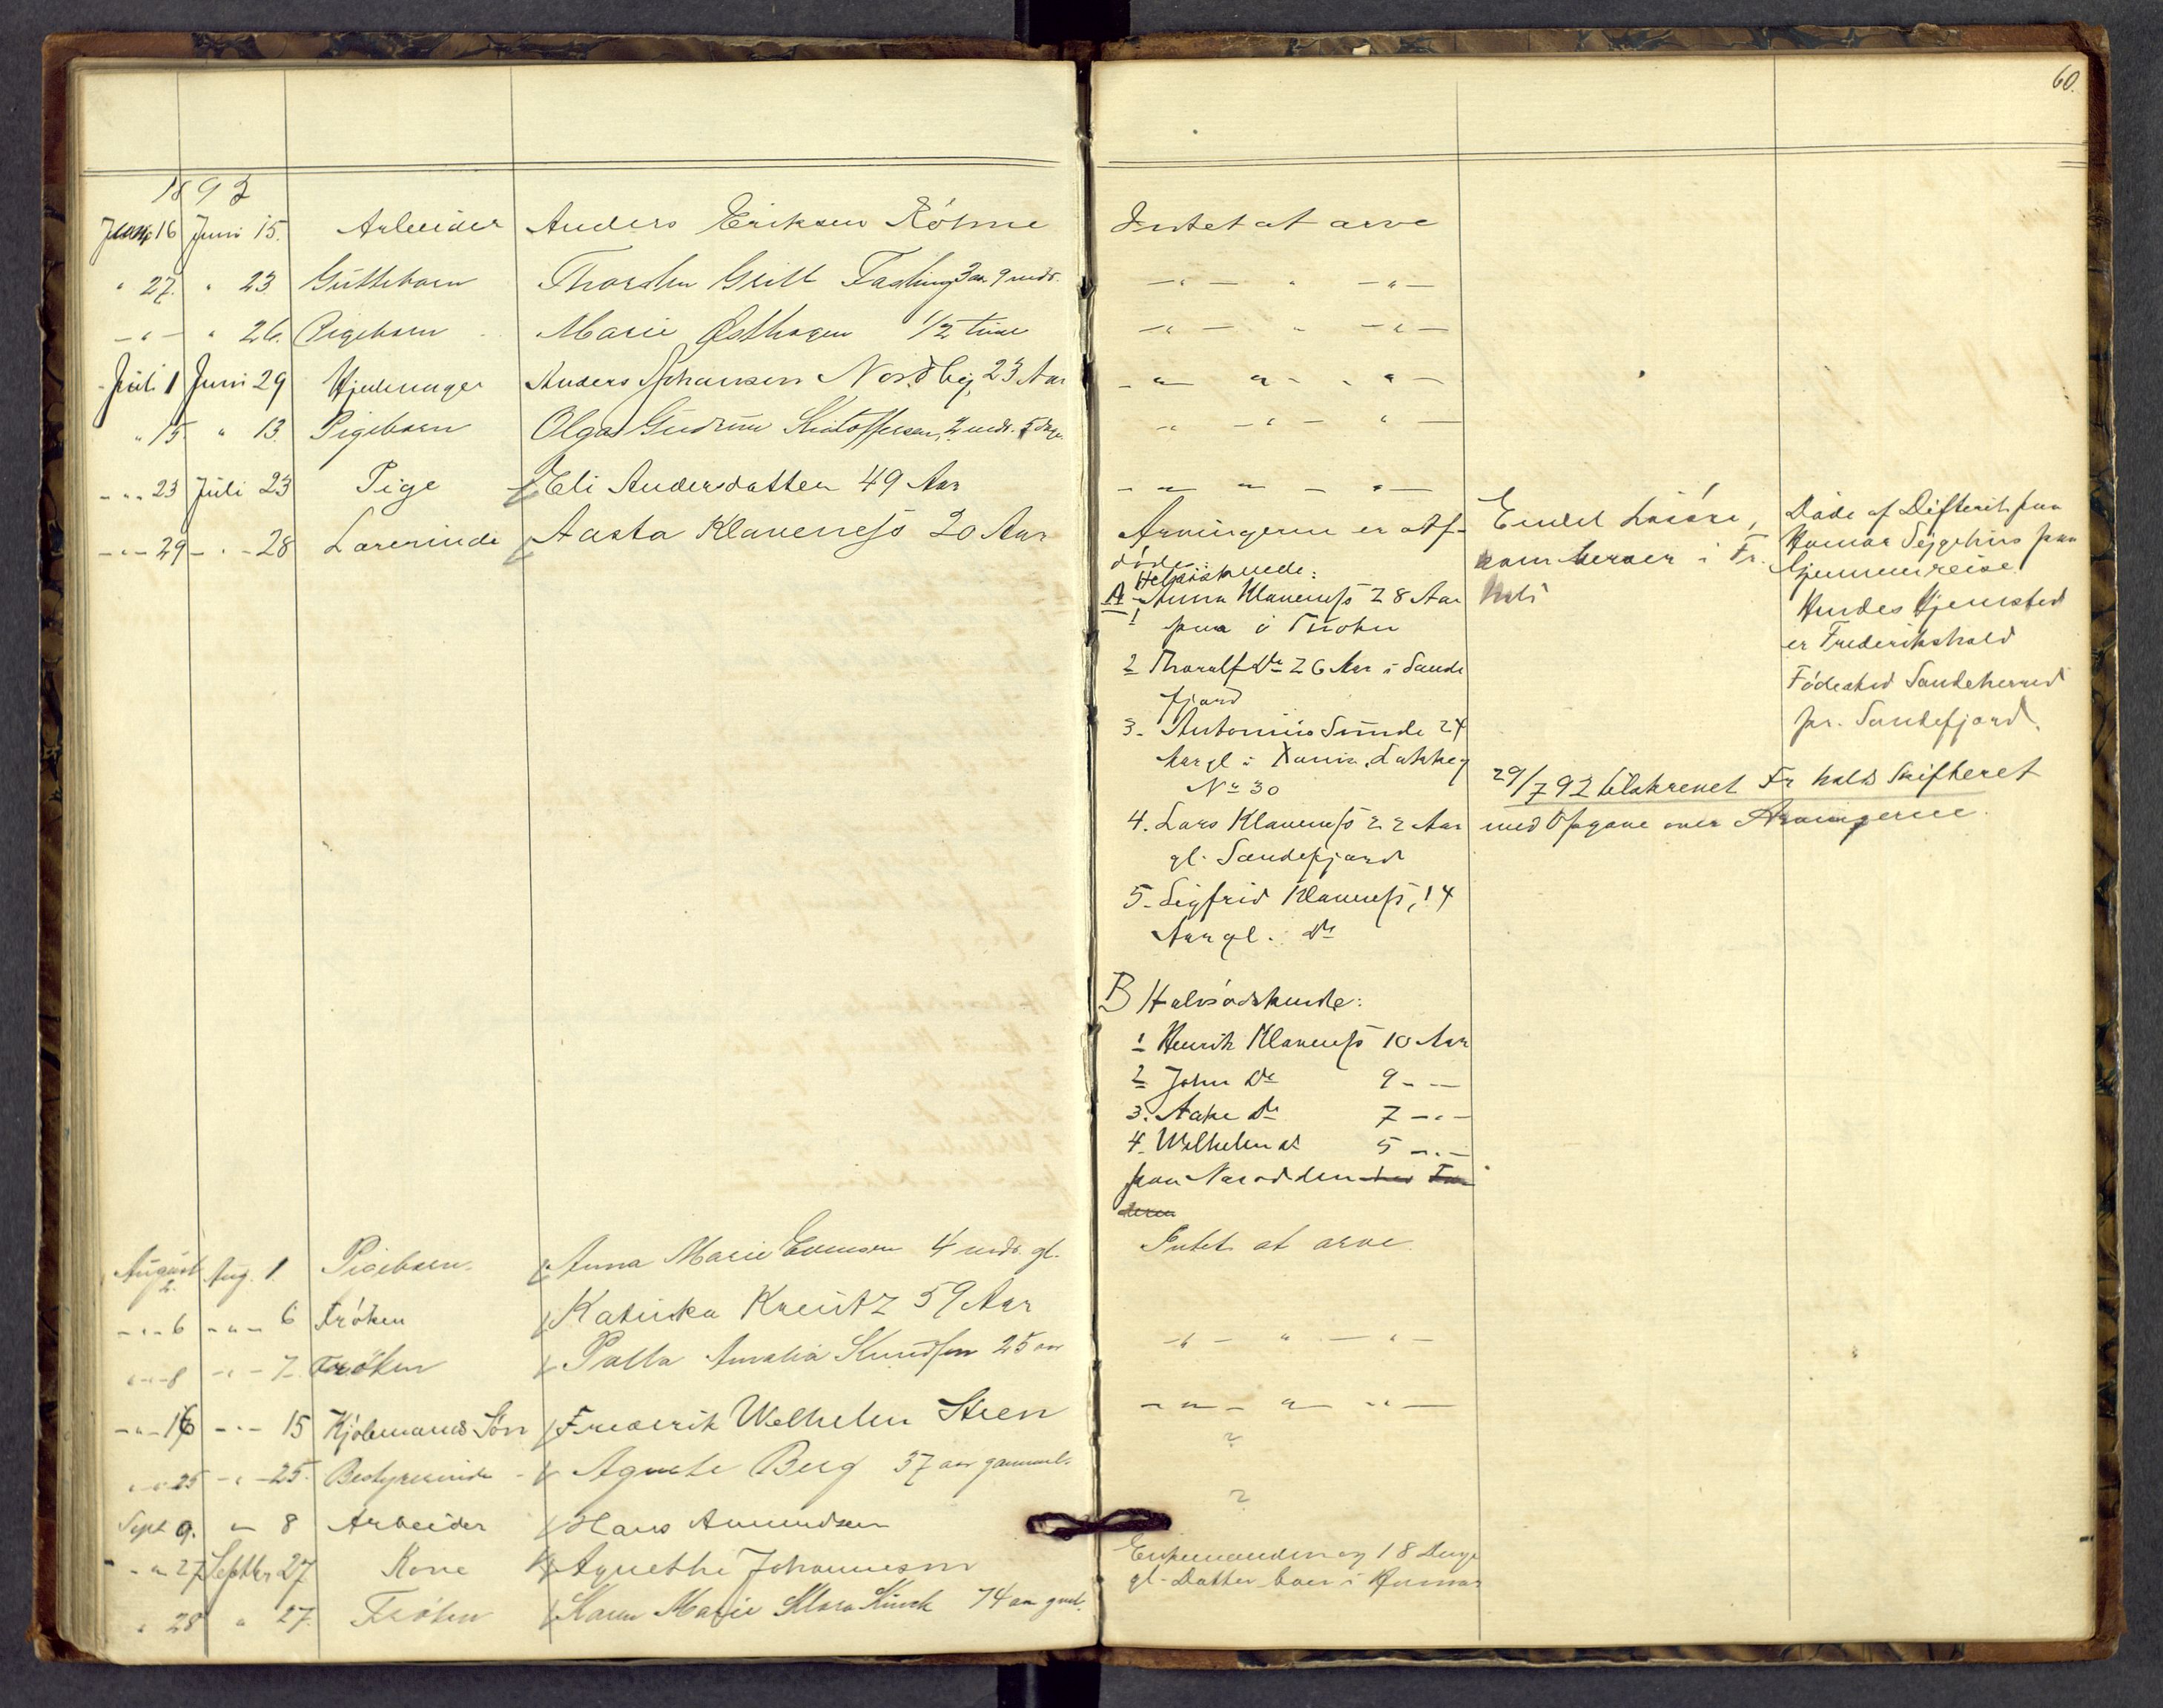 60.
1892
Juni 16 Juni 15. Arbeider Anders Eriksen Röhne Intet at arve
" 27. " 23 Guttebarn Thorsten Grill Fasting 3 aar 9 mdr. — " — " — " —
— " — " 26. Pigebarn Marie Østhagen 1/2 time — " — " — " —
Juli 1 Juni 29 Hjulmager Anders Johansen Nordby, 23 Aar — " — " — " —
" 15 " 13. Pigebarn Olga Gudrun Kristoffersen, 2 mdr. 5 dage — " — " — " —
— " — 23 Juli 23 Pige Eli Andersdatter 49 Aar — " — " — " —
— " — 29 — " — 28 Lærerinde Aasta Klaveness 20 Aar
Arvingerne er af-
døde
Helsöskende:
A
1 Anna Klaveness 28 Aar
paa
2 Thoralf Do 26 Aar i Sande
fjord
3. Antonius Sunde 24
Aar gl i
No 30
4. Lars Klaveness 22 Aar
gl. Sandefjord
5. Sigfrid Klaveness, 14
Aar gl. Do
B Halvsödskende:
1 Henrik Klaveness 10 Aar
2 John Do 9 — —
3. Aake Do 7 — " —
4. Wilhelm do 5 — " —
paa Næsodden
Endel Lösöre,
som beror i Fr.
hald
Döde af Difterit paa
Hamar Sygehus paa
Gjennemreise
Hendes Hjemsted
er Frederikshald
Födested Sandeherred
pr. Sandefjord.
29/7 92 tilskrevet Fr halds Skifteret
med Opgave over Arvingerne.
August 2. Aug. 1 Pigebarn. Anna Marie Evensen 4 mdr. gl. Intet at arve.
— " — 6 — " — 6 Fröken Katinka Kreutz 59 Aar — " — " — " —
" — " — 8 — " — 7. Fröken Palla Amalia Knudsen 25 aar — " — " — " —
— " — 16 — " — 15 Kjöbmands Sön Frederik Wilhelm Steen ?
" " 25 — " — 25. Bestyrerinde Agnete Berg 37 aar gammel. ?
Sept 9. " 8 Arbeider Hans Amundsen
— " 27 Septbr 27 Kone Agnethe Johannesen Enkemanden og 18 Aars
gl. Datter boer i Hamar
" 28 " 27. Fröken Karen Marie Klara Kinck 74 aar gml.